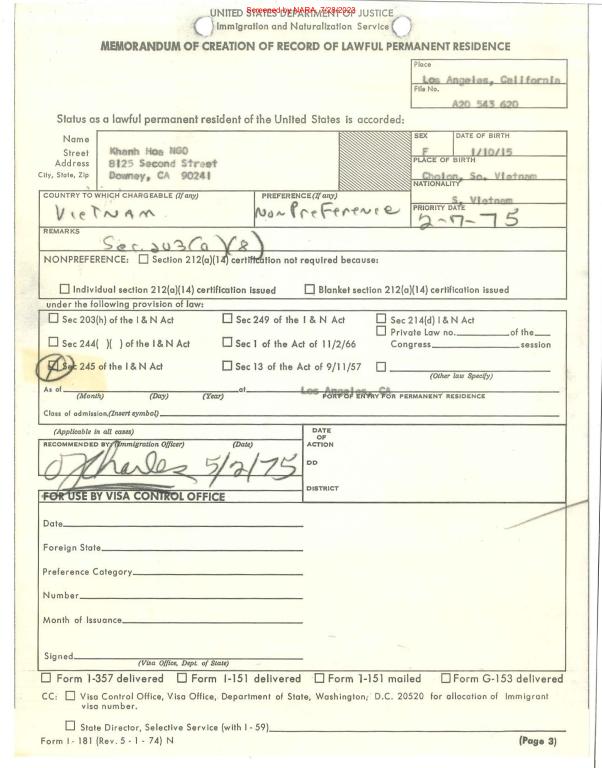 Screened by NARA, 7/28/2023
UNITED STATES DEPARTMENT OF JUSTICE
Immigration and Naturalization Service
MEMORANDUM OF CREATION OF RECORD OF LAWFUL PERMANENT RESIDENCE
Place
Los Angeles, California
File No.
A20 543 620
Status as a lawful permanent resident of the United States is accorded:
Name Khanh Hoa NGO
Street 8125 Second Street
Address
City, State, Zip Downey, CA 90241
SEX DATE OF BIRTH
F 1/10/15
PLACE OF BIRTH
Cholon, So. Vietnam
NATIONALITY
S. Vietnam
COUNTRY TO WHICH CHARGEABLE (If any) PREFERENCE (If any) PRIORITY DATE
VIETNAM NonPreference 2-7-75
REMARKS
Sec. 203(a)(8)
NONPREFERENCE: Section 212(a)(14) certification not required because:
Individual section 212(a)(14) certification issued Blanket section 212(a)(14) certification issued
under the following provision of law:
Sec 203(h) of the I & N Act Sec 249 of the I & N Act Sec 214(d) I & N Act
Private Law no. of the
Sec 244( )( ) of the I & N Act Sec 1 of the Act of 11/2/66 Congress session
Sec 245 of the I & N Act Sec 13 of the Act of 9/11/57
(Other law Specify)
As of at Los Angeles, CA
(Month) (Day) (Year) PORT OF ENTRY FOR PERMANENT RESIDENCE
Class of admission, (Insert symbol)
(Applicable in all cases)
RECOMMENDED BY: (Immigration Officer) (Date)
Charles 5/2/75
DATE
OF
ACTION
DD
DISTRICT
FOR USE BY VISA CONTROL OFFICE
Date
Foreign State
Preference Category
Number
Month of Issuance
Signed
(Visa Office, Dept. of State)
Form I-357 delivered Form I-151 delivered Form I-151 mailed Form G-153 delivered
CC: Visa Control Office, Visa Office, Department of State, Washington, D.C. 20520 for allocation of Immigrant
visa number.
State Director, Selective Service (with I - 59)
Form I - 181 (Rev. 5 - 1 - 74) N (Page 3)